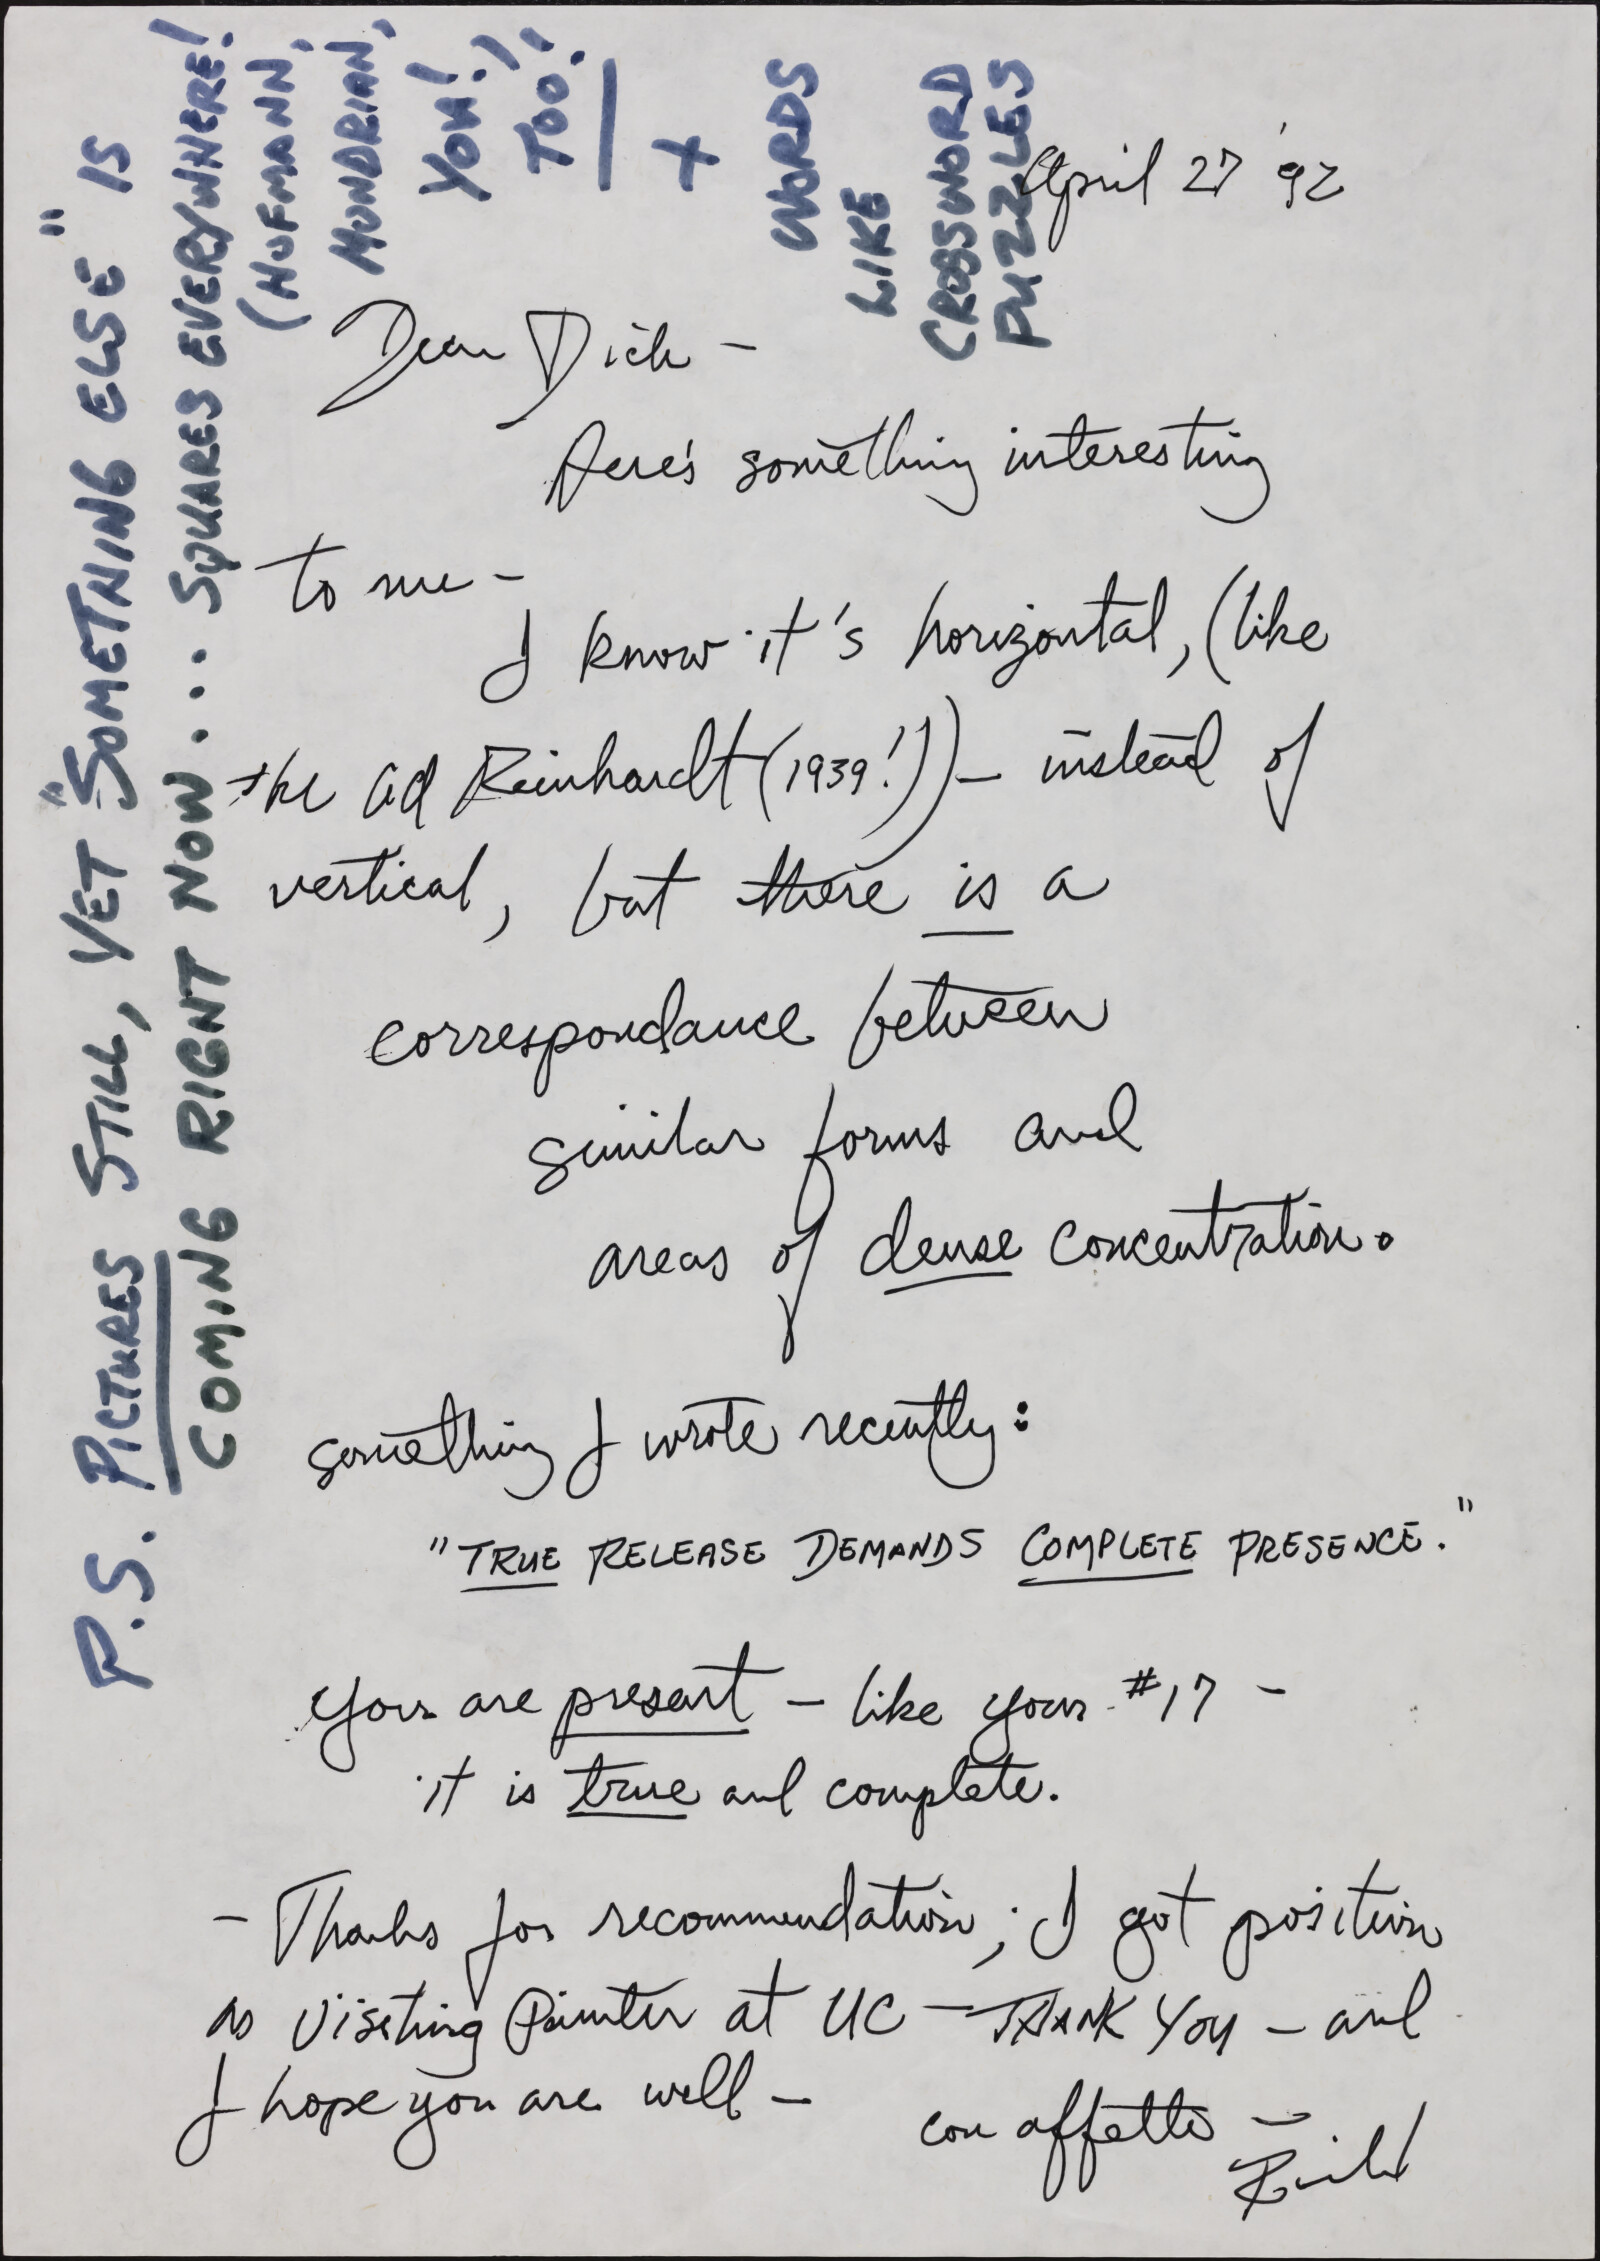 April 27 '92
Dear Dick –
Here's something interesting
to me –
I know it's horizontal, (like
the Ad Reinhardt (1939!)) – instead of
vertical, but there is a
correspondance between
similar forms and
areas of dense concentration.
something I wrote recently:
"TRUE RELEASE DEMANDS COMPLETE PRESENCE."
You are present – like your #17 –
it is true and complete.
– Thanks for recommendation; I got position
as Visiting Painter at UC – THANK YOU – and
I hope you are well –
con affetto –
P.S. PICTURES STILL, YET "SOMETHING ELSE" IS
COMING RIGHT NOW... SQUARES EVERYWHERE!
(HOFMANN,
MONDRIAN,
YOU!),
TOO!
+
WORDS
LIKE
CROSSWORD
PUZZLES